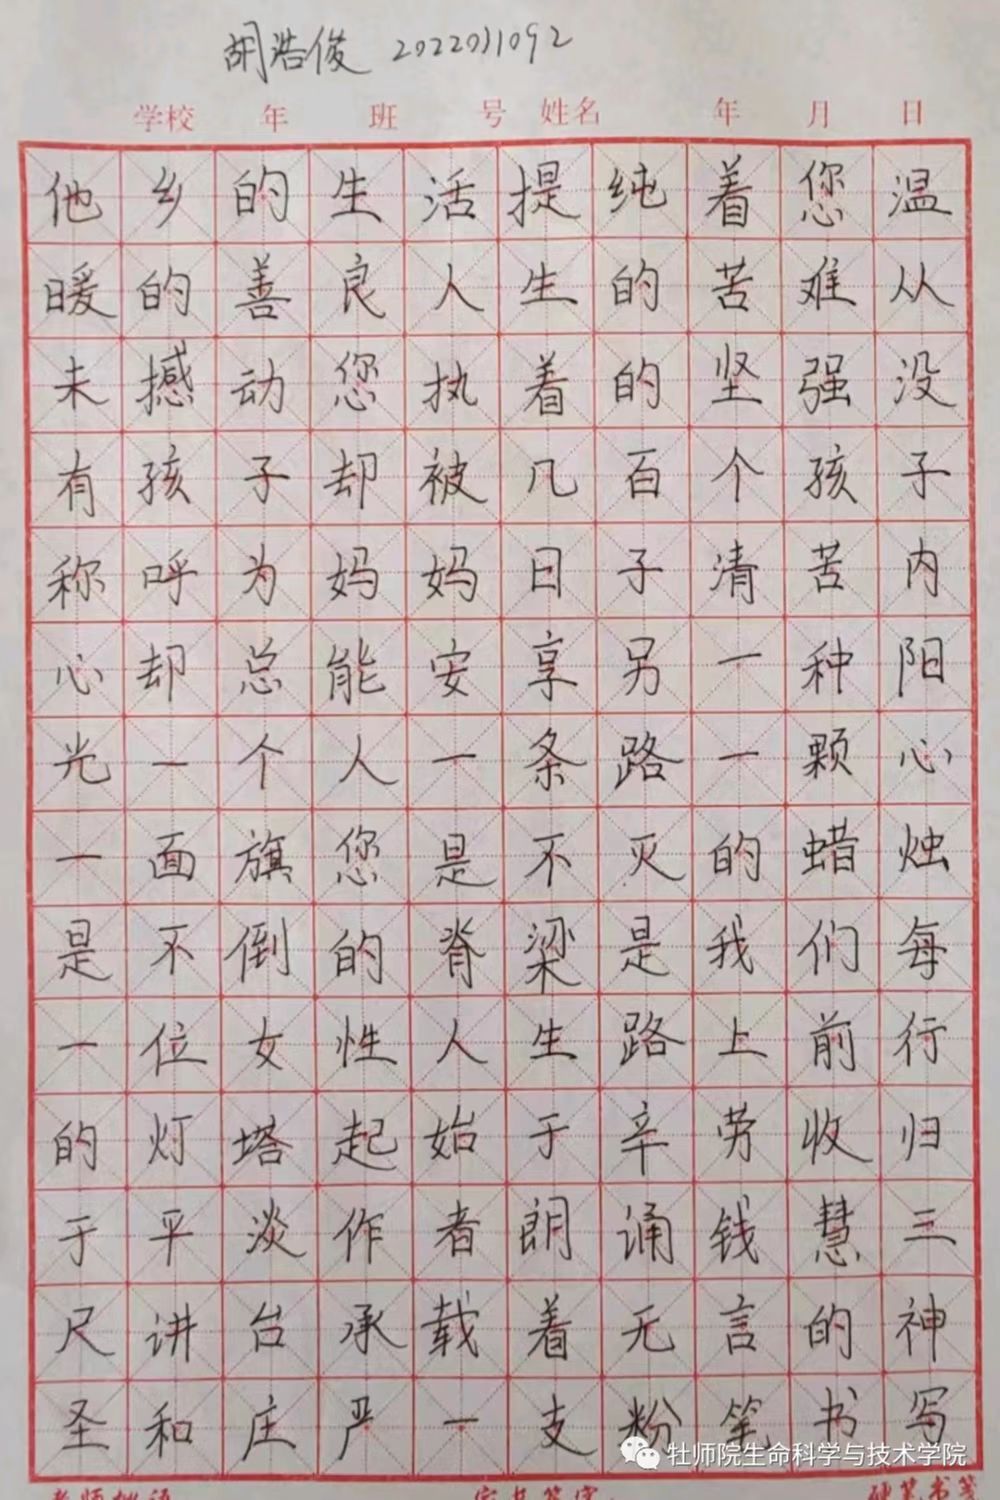 胡浩俊 2022011092
学校 年 班 号 姓名 年 月 日
他乡的生活提纯着您温
暖的善良人生的苦难从
未撼动您执着的坚强没
有孩子却被几百个孩子
称呼为妈妈日子清苦内
心却总能安享另一种阳
光一个人一条路一颗心
一面旗您是不灭的蜡烛
是不倒的脊梁是我们每
一位女性人生路上前行
的灯塔起始于辛劳收归
于平淡作者朗诵钱慧三
尺讲台承载着无言的神
圣和庄严一支粉笔书写
牡师院生命科学与技术学院
硬笔书笺